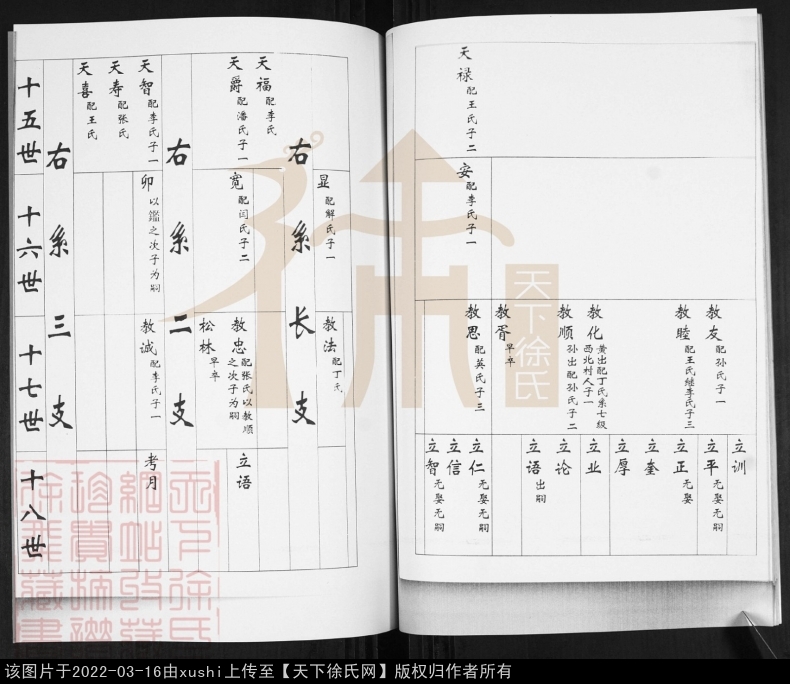 天禄 配王氏子二
安 配李氏子一
教友 配孙氏子一
教睦 配王氏继李氏子三
教化 黄出配丁氏系七级
西北村人子一
教顺 孙出配孙氏子二
教胥 早卒
教思 配英氏子三
立训
立平 无娶无嗣
立正 无娶
立奎
立厚
立业
立论
立语 出嗣
立仁 无娶无嗣
立信
立智 无娶无嗣
显 配解氏子一
教法 配丁氏
右系长支
天福 配李氏
天爵 配潘氏子一
宽 配闫氏子二
教忠 配张氏以教顺
之次子为嗣
松林 早卒
立语
右系二支
天智 配李氏子一
天寿 配张氏
天喜 配王氏
卯 以鑑之次子为嗣
教诚 配李氏子一
考月
右系三支
十五世
十六世
十七世
十八世
天下徐氏
该图片于2022-03-16由xushi上传至【天下徐氏网】版权归作者所有